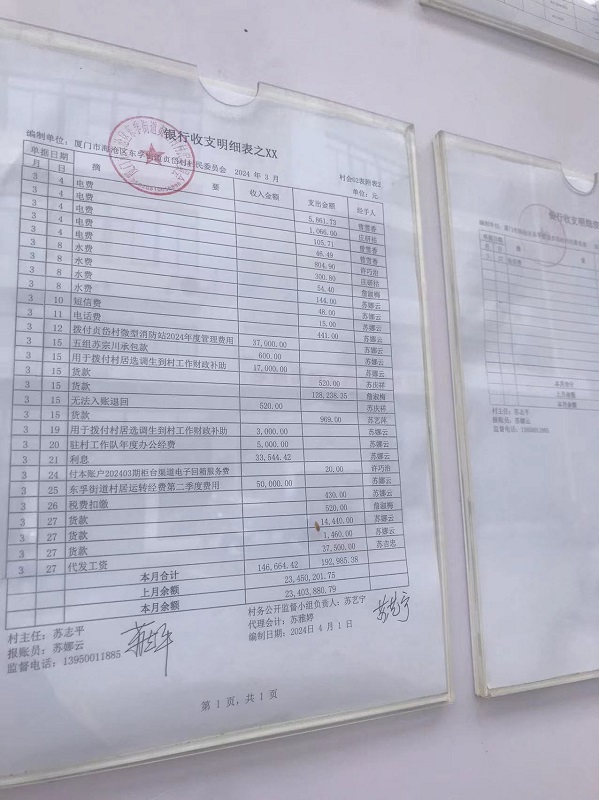 银行收支明细表之XX
村会02表附表2
编制单位：厦门市海沧区东孚街道贞岱村村民委员会 2024 年 3 月 单位：元
单据日期 摘 要 收入金额 支出金额 经手人
月 日
3 4 电费 5,861.73
3 4 电费 1,066.00
3 4 电费 105.71
3 4 电费 46.49
3 4 电费 804.90 许巧治
3 8 水费 300.80
3 8 水费 54.40 詹淑梅
3 8 水费 144.00 苏娜云
3 8 水费 48.00 苏娜云
3 10 短信费 15.00 苏娜云
3 11 电话费 441.00 苏娜云
3 12 拨付贞岱村微型消防站2024年度管理费用 37,000.00 苏娜云
3 15 五组苏宗川承包款 600.00 苏娜云
3 15 用于拨付村居选调生到村工作财政补助 17,000.00 苏娜云
3 15 货款 520.00 苏庆祥
3 15 货款 128,238.35 詹淑梅
3 15 无法入账退回 520.00 苏庆祥
3 15 货款 969.00 苏艺萍
3 19 用于拨付村居选调生到村工作财政补助 3,000.00 苏娜云
3 20 驻村工作队年度办公经费 5,000.00 苏娜云
3 21 利息 33,544.42 苏娜云
3 24 付本账户202403期柜台渠道电子回箱服务费 20.00 许巧治
3 25 东孚街道村居运转经费第二季度费用 50,000.00 苏娜云
3 26 税费扣缴 430.00 詹淑梅
3 27 货款 520.00 苏娜云
3 27 货款 14,440.00 苏娜云
3 27 货款 1,460.00
3 27 代发工资 37,500.00
本月合计 146,664.42 192,985.38
上月余额 23,450,201.75
本月余额 23,402,880.79
村主任：苏志平 村务公开监督小组负责人：苏艺宁
报账员：苏娜云 代理会计：苏雅婷
监督电话：13950011885 编制日期：2024年 4 月 1 日
第 1 页，共 1 页
银行收支明细
本月合计
上月余额
本月余额
村主任：苏志平
报账员：苏娜云
监督电话：13950011885